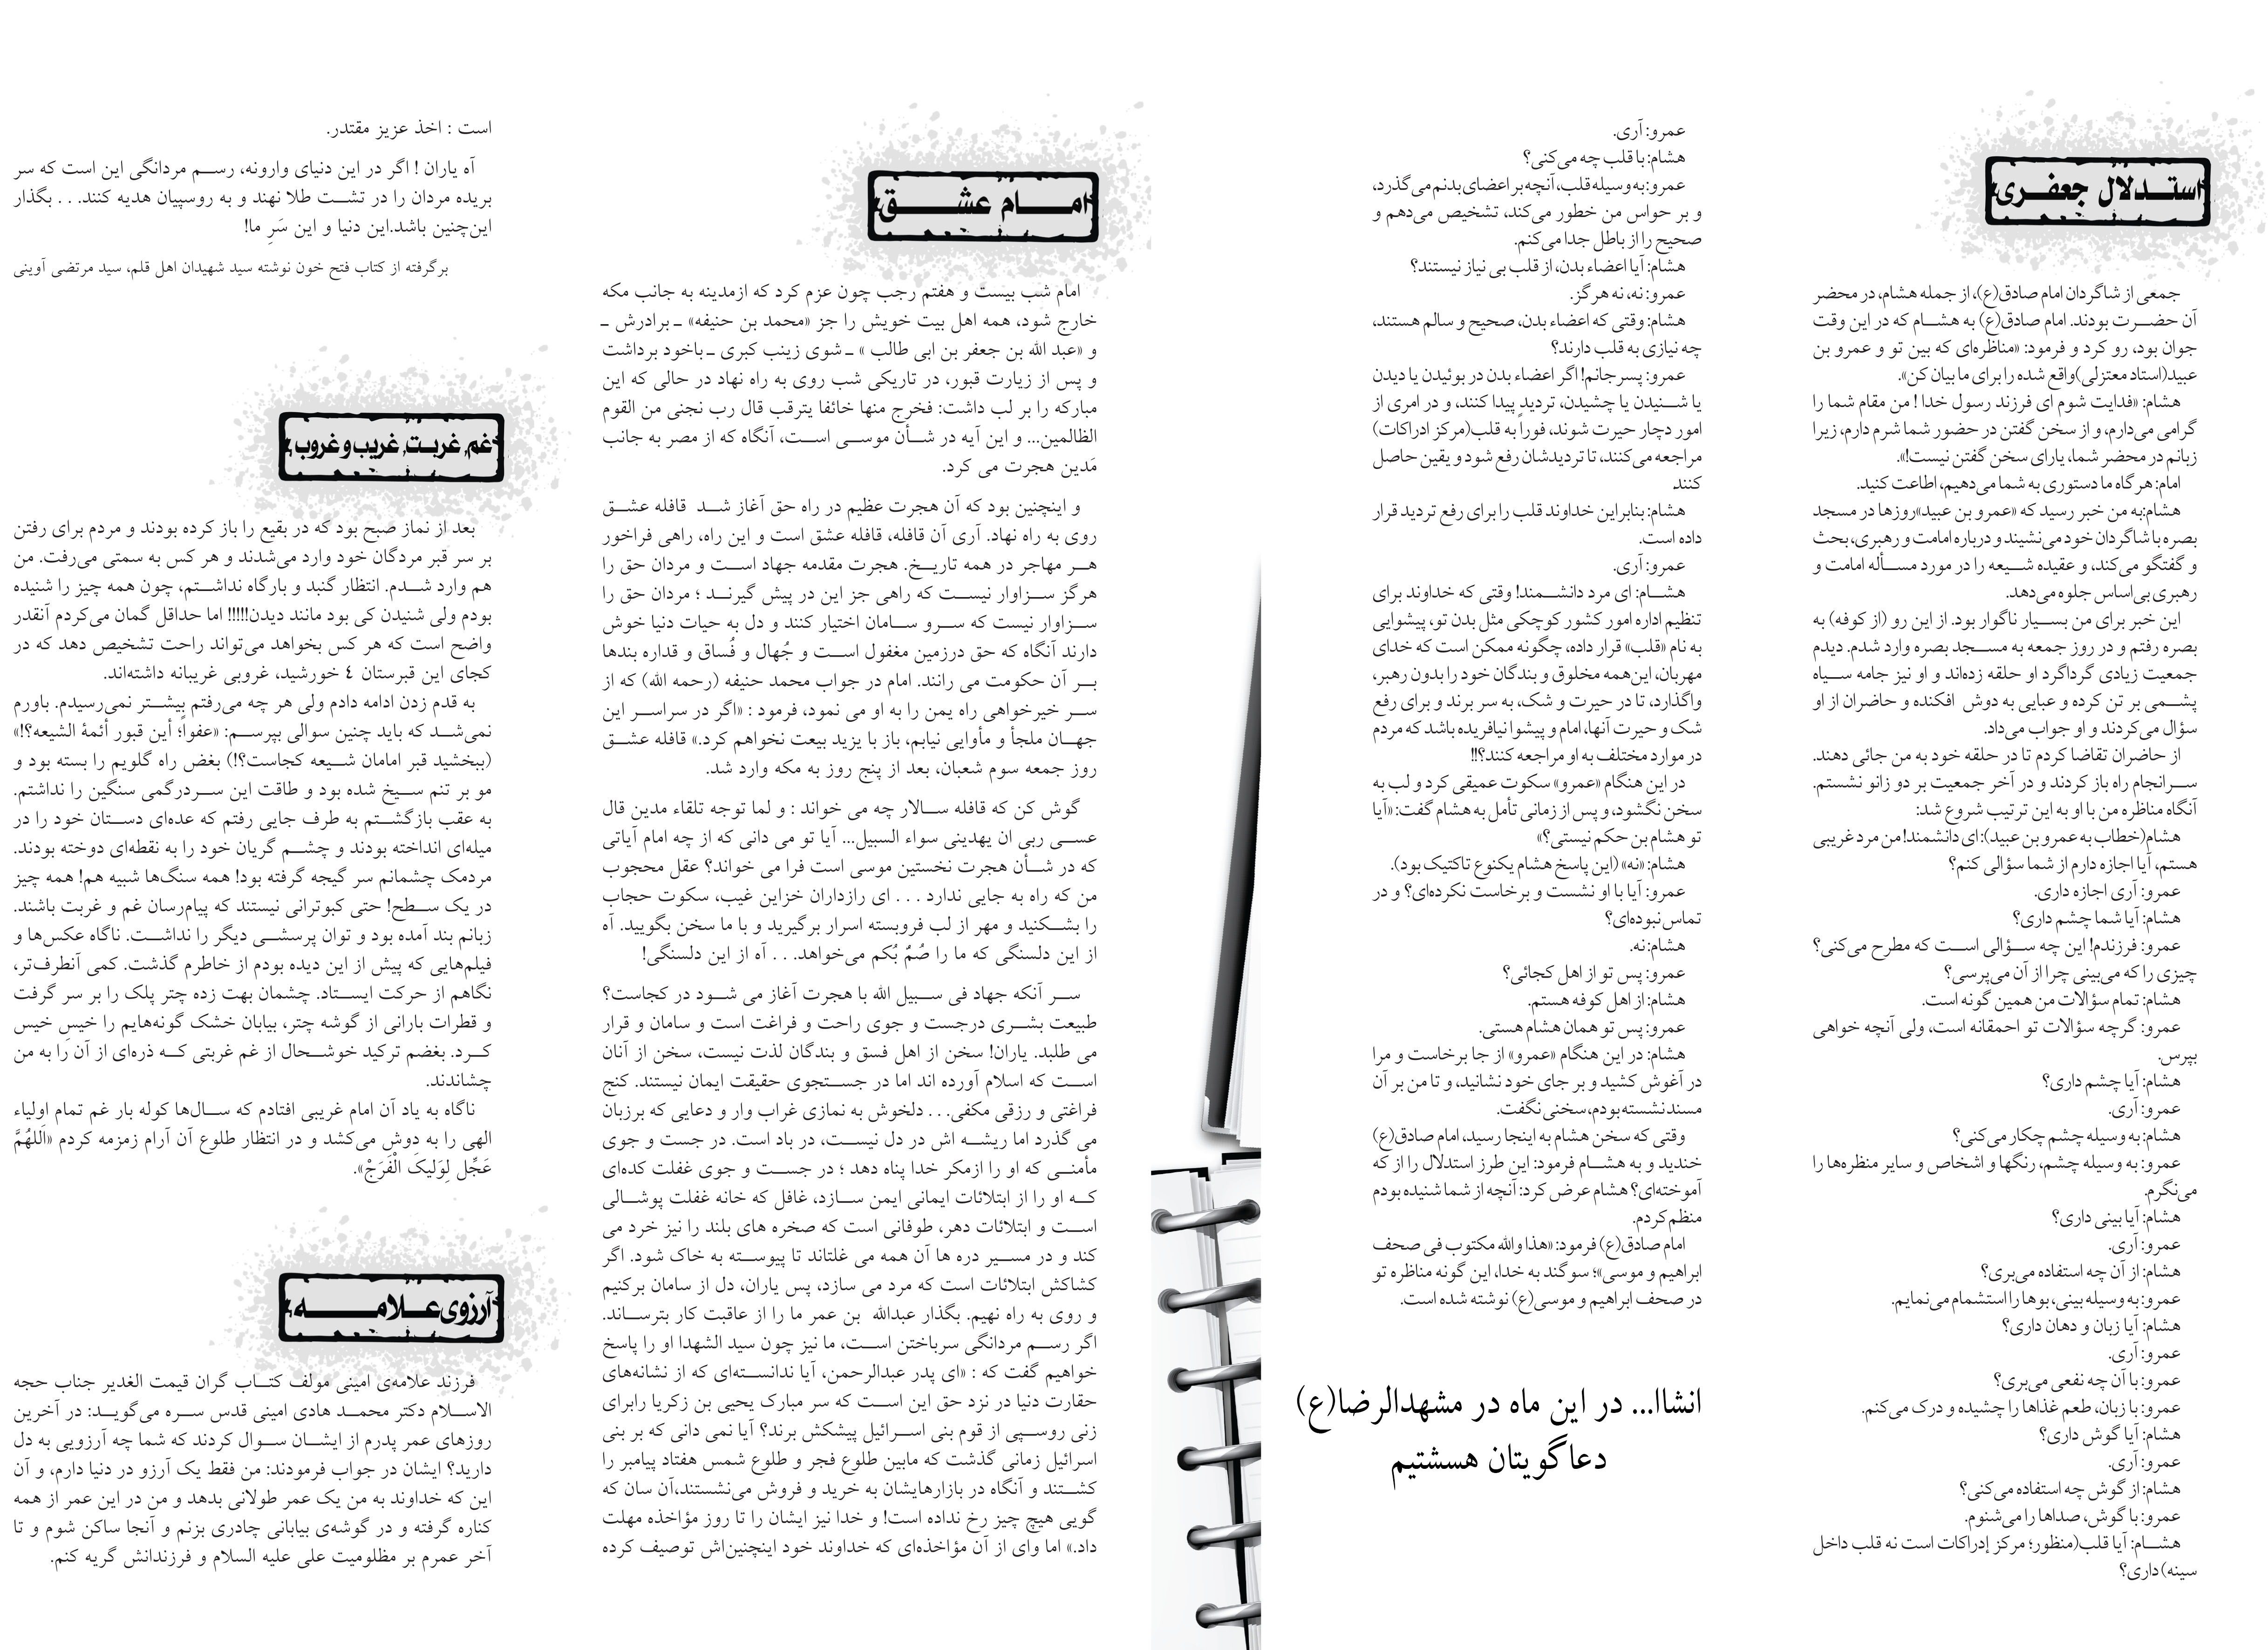 استدلال جعفری
جمعی از شاگردان امام صادق(ع)، از جمله هشام، در محضر
آن حضرت بودند. امام صادق(ع) به هشام که در این وقت
جوان بود، رو کرد و فرمود: «مناظره‌ای که بین تو و عمرو بن
عبید(استاد معتزلی)واقع شده را برای ما بیان کن».
هشام: «فدایت شوم ای فرزند رسول خدا ! من مقام شما را
گرامی می‌دارم، و از سخن گفتن در حضور شما شرم دارم، زیرا
زبانم در محضر شما، یارای سخن گفتن نیست!».
امام: هرگاه ما دستوری به شما می‌دهیم، اطاعت کنید.
هشام:به من خبر رسید که «عمرو بن عبید»روزها در مسجد
بصره با شاگردان خود می‌نشیند و درباره امامت و رهبری، بحث
و گفتگو می‌کند، و عقیده شیعه را در مورد مسأله امامت و
رهبری بی‌اساس جلوه می‌دهد.
این خبر برای من بسیار ناگوار بود. از این رو (از کوفه) به
بصره رفتم و در روز جمعه به مسجد بصره وارد شدم. دیدم
جمعیت زیادی گرداگرد او حلقه زده‌اند و او نیز جامه سیاه
پشمی بر تن کرده و عبایی به دوش افکنده و حاضران از او
سؤال می‌کردند و او جواب می‌داد.
از حاضران تقاضا کردم تا در حلقه خود به من جائی دهند.
سرانجام راه باز کردند و در آخر جمعیت بر دو زانو نشستم.
آنگاه مناظره من با او به این ترتیب شروع شد:
هشام(خطاب به عمرو بن عبید):ای دانشمند! من مرد غریبی
هستم، آیا اجازه دارم از شما سؤالی کنم؟
عمرو: آری اجازه داری.
هشام: آیا شما چشم داری؟
عمرو: فرزندم! این چه سؤالی است که مطرح می‌کنی؟
چیزی را که می‌بینی چرا از آن می‌پرسی؟
هشام: تمام سؤالات من همین گونه است.
عمرو: گرچه سؤالات تو احمقانه است، ولی آنچه خواهی
بپرس.
هشام: آیا چشم داری؟
عمرو: آری.
هشام: به وسیله چشم چکار می‌کنی؟
عمرو: به وسیله چشم، رنگها و اشخاص و سایر منظره‌ها را
می‌نگرم.
هشام: آیا بینی داری؟
عمرو: آری.
هشام: از آن چه استفاده می‌بری؟
عمرو: به وسیله بینی، بوها را استشمام می‌نمایم.
هشام: آیا زبان و دهان داری؟
عمرو: آری.
عمرو: با آن چه نفعی می‌بری؟
عمرو: با زبان، طعم غذاها را چشیده و درک می‌کنم.
هشام: آیا گوش داری؟
عمرو: آری.
هشام: از گوش چه استفاده می‌کنی؟
عمرو: با گوش، صداها را می‌شنوم.
هشام: آیا قلب(منظور؛ مرکز إدراکات است نه قلب داخل
سینه) داری؟
عمرو: آری.
هشام: با قلب چه می‌کنی؟
عمرو: به وسیله قلب، آنچه بر اعضای بدنم می گذرد،
و بر حواس من خطور می‌کند، تشخیص می‌دهم و
صحیح را از باطل جدا می‌کنم.
هشام: آیا اعضاء بدن، از قلب بی نیاز نیستند؟
عمرو: نه، نه هرگز.
هشام: وقتی که اعضاء بدن، صحیح و سالم هستند،
چه نیازی به قلب دارند؟
عمرو: پسرجانم! اگر اعضاء بدن در بوئیدن یا دیدن
یا شنیدن یا چشیدن، تردید پیدا کنند، و در امری از
امور دچار حیرت شوند، فوراً به قلب(مرکز ادراکات)
مراجعه می‌کنند، تا تردیدشان رفع شود و یقین حاصل
کنند.
هشام: بنابراین خداوند قلب را برای رفع تردید قرار
داده است.
عمرو: آری.
هشام: ای مرد دانشمند! وقتی که خداوند برای
تنظیم اداره امور کشور کوچکی مثل بدن تو، پیشوایی
به نام «قلب» قرار داده، چگونه ممکن است که خدای
مهربان، این‌همه مخلوق و بندگان خود را بدون رهبر،
واگذارد، تا در حیرت و شک، به سر برند و برای رفع
شک و حیرت آنها، امام و پیشوا نیافریده باشد که مردم
در موارد مختلف به او مراجعه کنند؟!!
در این هنگام «عمرو» سکوت عمیقی کرد و لب به
سخن نگشود، و پس از زمانی تأمل به هشام گفت: «آیا
تو هشام بن حکم نیستی؟»
هشام: «نه» (این پاسخ هشام یکنوع تاکتیک بود).
عمرو: آیا با او نشست و برخاست نکرده‌ای؟ و در
تماس نبوده‌ای؟
هشام: نه.
عمرو: پس تو از اهل کجائی؟
هشام: از اهل کوفه هستم.
عمرو: پس تو همان هشام هستی.
هشام: در این هنگام «عمرو» از جا برخاست و مرا
در آغوش کشید و بر جای خود نشانید، و تا من بر آن
مسند نشسته بودم، سخنی نگفت.
وقتی که سخن هشام به اینجا رسید، امام صادق(ع)
خندید و به هشام فرمود: این طرز استدلال را از که
آموخته‌ای؟ هشام عرض کرد: آنچه از شما شنیده بودم
منظم کردم.
امام صادق(ع) فرمود: «هذا والله مکتوب فی صحف
ابراهیم و موسی»؛ سوگند به خدا، این گونه مناظره تو
در صحف ابراهیم و موسی(ع) نوشته شده است.
انشاا... در این ماه در مشهدالرضا(ع)
دعاگویتان هسشتیم
امام عشق
امام شب بیست و هفتم رجب چون عزم کرد که ازمدینه به جانب مکه
خارج شود، همه اهل بیت خویش را جز «محمد بن حنیفه» ـ برادرش ـ
و «عبد الله بن جعفر بن ابی طالب » ـ شوی زینب کبری ـ باخود برداشت
و پس از زیارت قبور، در تاریکی شب روی به راه نهاد در حالی که این
مبارکه را بر لب داشت: فخرج منها خائفا یترقب قال رب نجنی من القوم
الظالمین... و این آیه در شأن موسی است، آنگاه که از مصر به جانب
مَدین هجرت می کرد.
و اینچنین بود که آن هجرت عظیم در راه حق آغاز شد قافله عشق
روی به راه نهاد. آری آن قافله، قافله عشق است و این راه، راهی فراخور
هر مهاجر در همه تاریخ. هجرت مقدمه جهاد است و مردان حق را
هرگز سزاوار نیست که راهی جز این در پیش گیرند ؛ مردان حق را
سزاوار نیست که سرو سامان اختیار کنند و دل به حیات دنیا خوش
دارند آنگاه که حق درزمین مغفول است و جُهال و فُساق و قداره بندها
بر آن حکومت می رانند. امام در جواب محمد حنیفه (رحمه الله) که از
سر خیرخواهی راه یمن را به او می نمود، فرمود : «اگر در سراسر این
جهان ملجأ و مأوایی نیابم، باز با یزید بیعت نخواهم کرد.» قافله عشق
روز جمعه سوم شعبان، بعد از پنج روز به مکه وارد شد.
گوش کن که قافله سالار چه می خواند : و لما توجه تلقاء مدین قال
عسی ربی ان یهدینی سواء السبیل... آیا تو می دانی که از چه امام آیاتی
که در شأن هجرت نخستین موسی است فرا می خواند؟ عقل محجوب
من که راه به جایی ندارد . . . ای رازداران خزاین غیب، سکوت حجاب
را بشکنید و مهر از لب فروبسته اسرار برگیرید و با ما سخن بگویید. آه
از این دلسنگی که ما را صُمٌ بُکم می‌خواهد. . . آه از این دلسنگی!
سر آنکه جهاد فی سبیل الله با هجرت آغاز می شود در کجاست؟
طبیعت بشری درجست و جوی راحت و فراغت است و سامان و قرار
می طلبد. یاران! سخن از اهل فسق و بندگان لذت نیست، سخن از آنان
است که اسلام آورده اند اما در جستجوی حقیقت ایمان نیستند. کنج
فراغتی و رزقی مکفی. . . دلخوش به نمازی غراب وار و دعایی که برزبان
می گذرد اما ریشه اش در دل نیست، در باد است. در جست و جوی
مأمنی که او را ازمکر خدا پناه دهد ؛ در جست و جوی غفلت کده‌ای
که او را از ابتلائات ایمانی ایمن سازد، غافل که خانه غفلت پوشالی
است و ابتلائات دهر، طوفانی است که صخره های بلند را نیز خرد می
کند و در مسیر دره ها آن همه می غلتاند تا پیوسته به خاک شود. اگر
کشاکش ابتلائات است که مرد می سازد، پس یاران، دل از سامان برکنیم
و روی به راه نهیم. بگذار عبدالله بن عمر ما را از عاقبت کار بترساند.
اگر رسم مردانگی سرباختن است، ما نیز چون سید الشهدا او را پاسخ
خواهیم گفت که : «ای پدر عبدالرحمن، آیا ندانسته‌ای که از نشانه‌های
حقارت دنیا در نزد حق این است که سر مبارک یحیی بن زکریا رابرای
زنی روسپی از قوم بنی اسرائیل پیشکش برند؟ آیا نمی دانی که بر بنی
اسرائیل زمانی گذشت که مابین طلوع فجر و طلوع شمس هفتاد پیامبر را
کشتند و آنگاه در بازارهایشان به خرید و فروش می‌نشستند،آن سان که
گویی هیچ چیز رخ نداده است! و خدا نیز ایشان را تا روز مؤاخذه مهلت
داد.» اما وای از آن مؤاخذه‌ای که خداوند خود اینچنین‌اش توصیف کرده
است : اخذ عزیز مقتدر.
آه یاران ! اگر در این دنیای وارونه، رسم مردانگی این است که سر
بریده مردان را در تشت طلا نهند و به روسپیان هدیه کنند. . . بگذار
این‌چنین باشد.این دنیا و این سَرِ ما!
برگرفته از کتاب فتح خون نوشته سید شهیدان اهل قلم، سید مرتضی آوینی
غم، غربت، غریب و غروب
بعد از نماز صبح بود که در بقیع را باز کرده بودند و مردم برای رفتن
بر سر قبر مردگان خود وارد می‌شدند و هر کس به سمتی می‌رفت. من
هم وارد شدم. انتظار گنبد و بارگاه نداشتم، چون همه چیز را شنیده
بودم ولی شنیدن کی بود مانند دیدن!!!!! اما حداقل گمان می‌کردم آنقدر
واضح است که هر کس بخواهد می‌تواند راحت تشخیص دهد که در
کجای این قبرستان ٤ خورشید، غروبی غریبانه داشته‌اند.
به قدم زدن ادامه دادم ولی هر چه می‌رفتم بیشتر نمی‌رسیدم. باورم
نمی‌شد که باید چنین سوالی بپرسم: «عفواً؛ أین قبور أئمهٔ الشیعه؟!»
(ببخشید قبر امامان شیعه کجاست؟!) بغض راه گلویم را بسته بود و
مو بر تنم سیخ شده بود و طاقت این سردرگمی سنگین را نداشتم.
به عقب بازگشتم به طرف جایی رفتم که عده‌ای دستان خود را در
میله‌ای انداخته بودند و چشم گریان خود را به نقطه‌ای دوخته بودند.
مردمک چشمانم سر گیجه گرفته بود! همه سنگ‌ها شبیه هم! همه چیز
در یک سطح! حتی کبوترانی نیستند که پیام‌رسان غم و غربت باشند.
زبانم بند آمده بود و توان پرسشی دیگر را نداشت. ناگاه عکس‌ها و
فیلم‌هایی که پیش از این دیده بودم از خاطرم گذشت. کمی آنطرف‌تر،
نگاهم از حرکت ایستاد. چشمان بهت زده چتر پلک را بر سر گرفت
و قطرات بارانی از گوشه چتر، بیابان خشک گونه‌هایم را خیسِ خیس
کرد. بغضم ترکید خوشحال از غم غربتی که ذره‌ای از آن را به من
چشاندند.
ناگاه به یاد آن امام غریبی افتادم که سال‌ها کوله بار غم تمام اولیاء
الهی را به دوش می‌کشد و در انتظار طلوع آن آرام زمزمه کردم «اَللهُمَّ
عَجِّل لِوَلیکَ الْفَرَجْ».
آرزوی علامه
فرزند علامه‌ی امینی مولف کتاب گران قیمت الغدیر جناب حجه
الاسلام دکتر محمد هادی امینی قدس سره می‌گوید: در آخرین
روزهای عمر پدرم از ایشان سوال کردند که شما چه آرزویی به دل
دارید؟ ایشان در جواب فرمودند: من فقط یک آرزو در دنیا دارم، و آن
این که خداوند به من یک عمر طولانی بدهد و من در این عمر از همه
کناره گرفته و در گوشه‌ی بیابانی چادری بزنم و آنجا ساکن شوم و تا
آخر عمرم بر مظلومیت علی علیه السلام و فرزندانش گریه کنم.